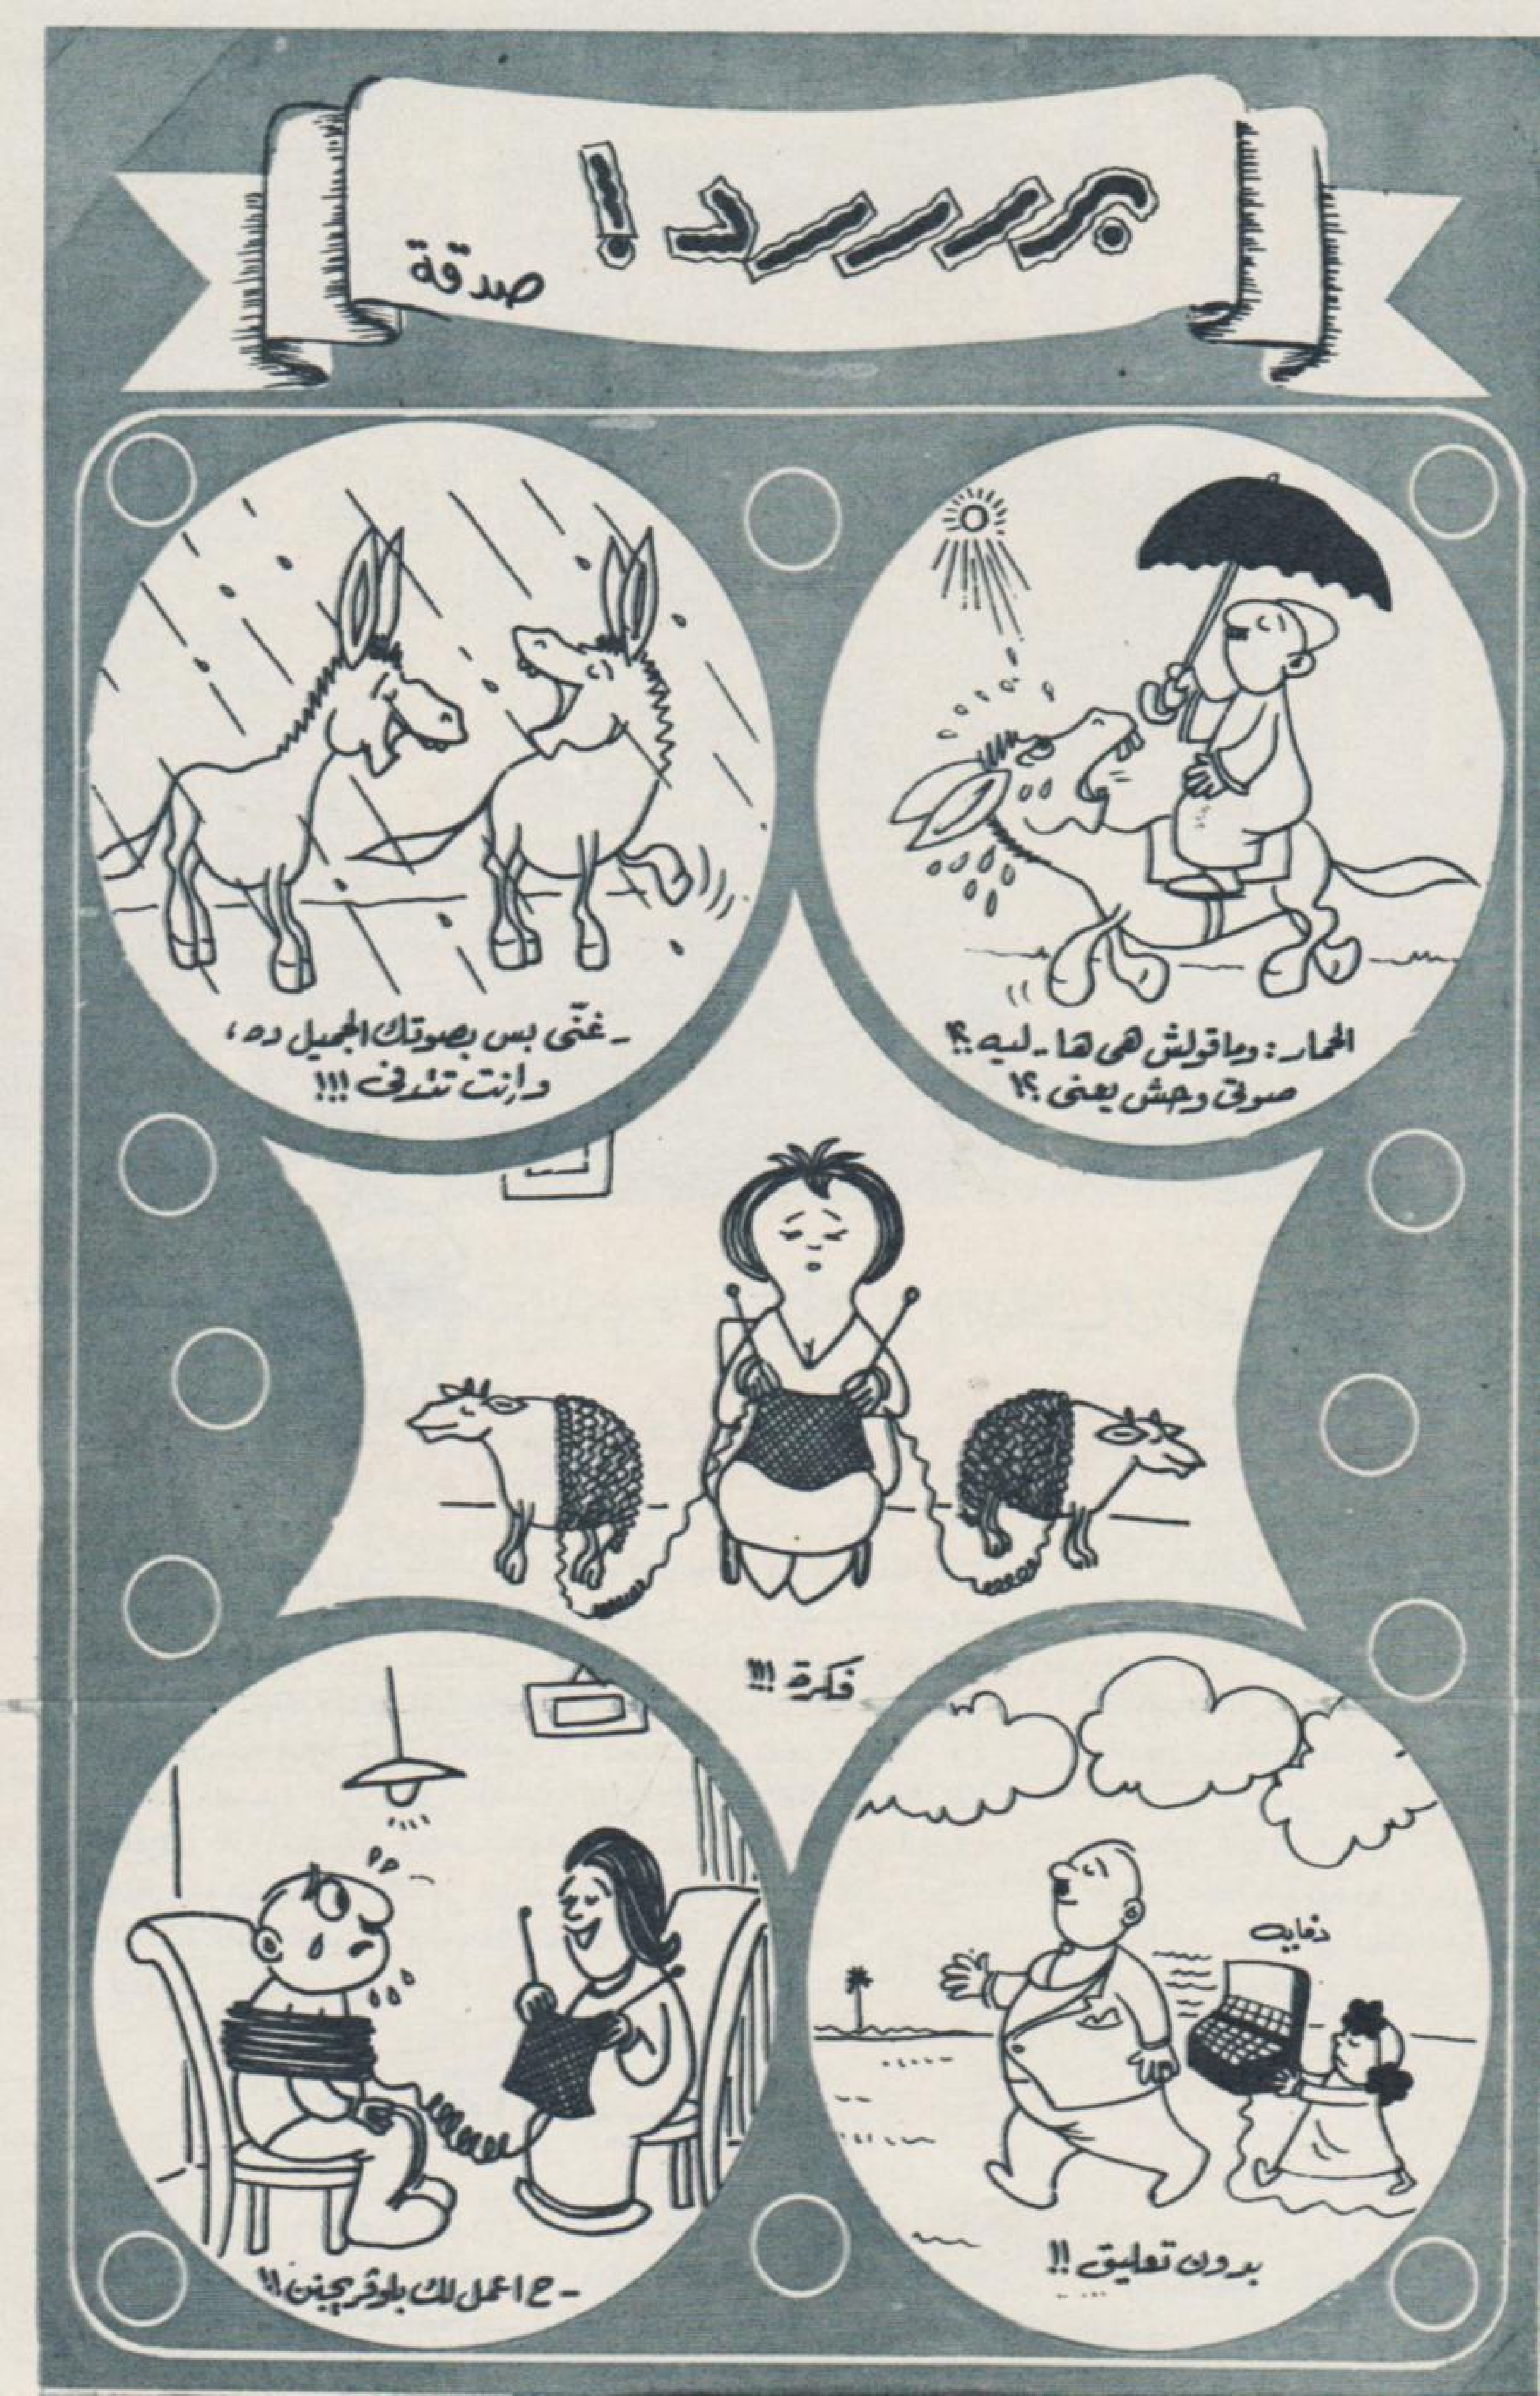 بررررد !
صدقة
الحمار : وماقولش هى ها - ليه ؟!
صوتى وحش يعنى ؟!
- غنّى بس بصوتك الجميل ده ،
وإنت تدفى !!!
فكرة !!!
دفايه
بدون تعليق !!
- ح اعمل لك بلوفر يجنن !!